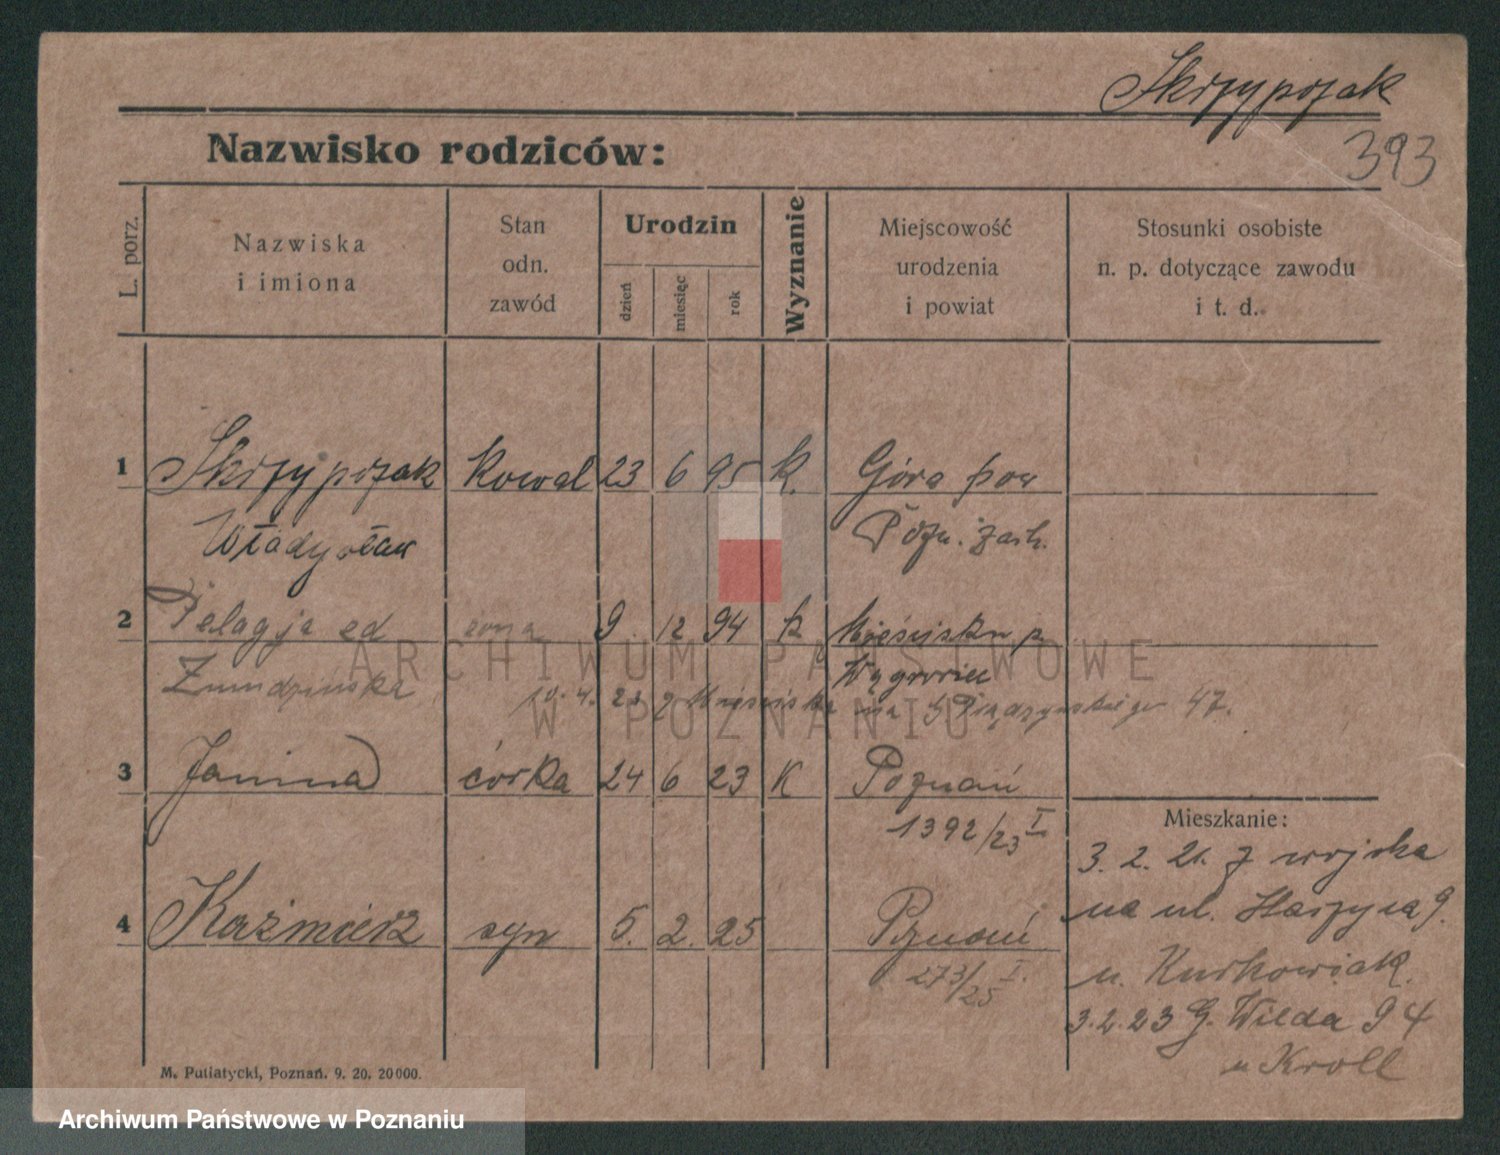 Skrzypczak
393
Nazwisko rodziców:
L. porz.
Nazwiska
i imiona
Stan
odn.
zawód
Urodzin
dzień
miesiąc
rok
Wyznanie
Miejscowość
urodzenia
i powiat
Stosunki osobiste
n. p. dotyczące zawodu
i t. d.
1 Skrzypczak kowal 23 6 95 k. Góra pow
Władysław Pozn. zach.
2 Pelagja żona 9. 12 94 k Mieścisku p.
Wągrowiec
10. 4. 23 47.
3 Janina córka 24 6 23 K Poznań
1392/23 I
4 Kaźmierz syn 5. 2. 25 Poznań
273/25 I.
Mieszkanie:
3. 2. 21. z wojska
na ul. 9.
u. Kurkowiak.
3.2.23 G. Wilda 94
u Kroll
M. Putiatycki, Poznań. 9. 20. 20000.
ARCHIWUM PAŃSTWOWE
W POZNANIU
Archiwum Państwowe w Poznaniu